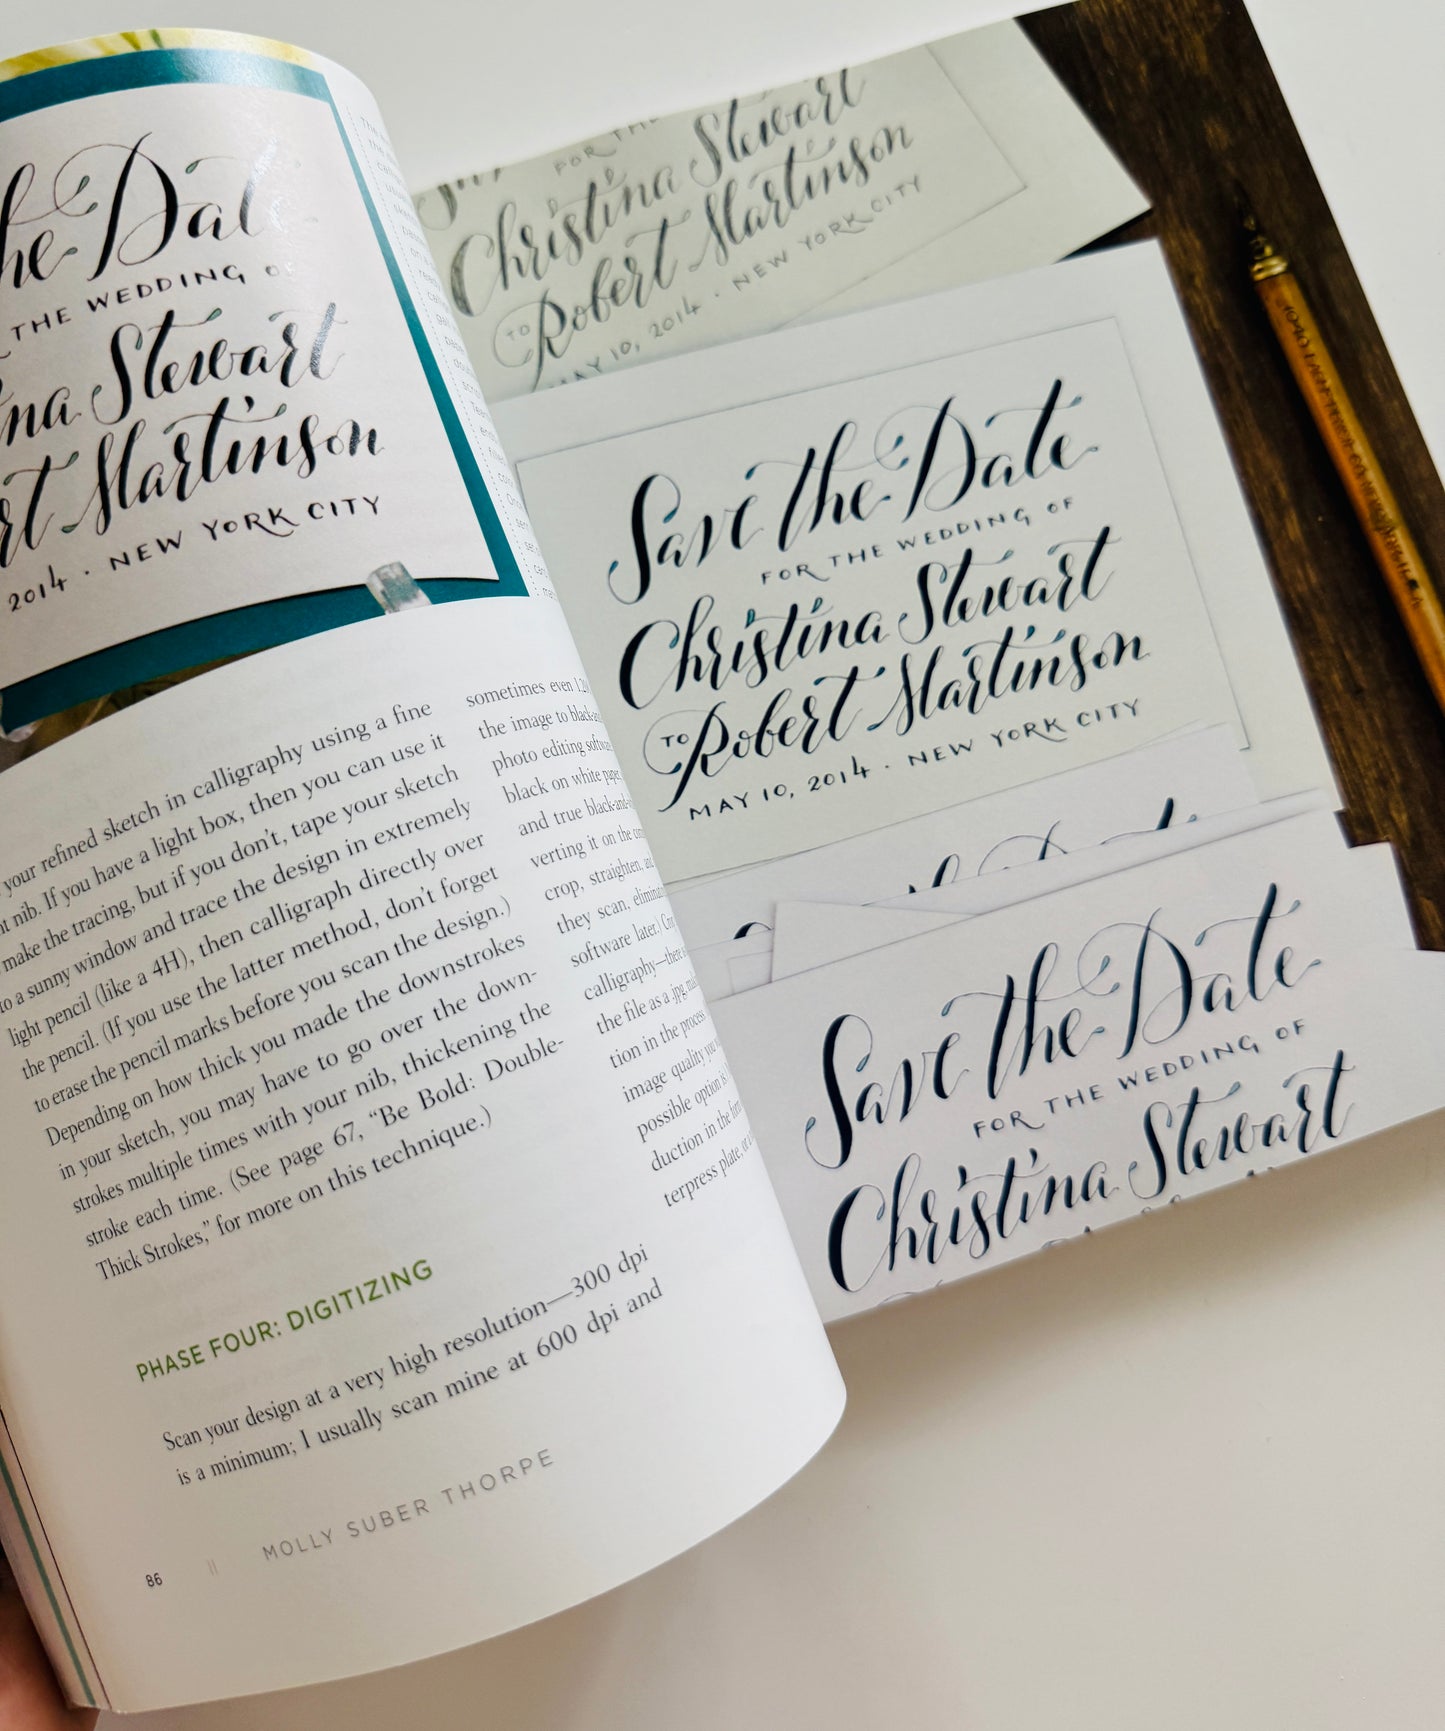 he Date
THE WEDDING OF
ina Stewart
rt Martinson
2014 · NEW YORK CITY
your refined sketch in calligraphy using a fine
nib. If you have a light box, then you can use it
make the tracing, but if you don't, tape your sketch
to a sunny window and trace the design in extremely
light pencil (like a 4H), then calligraph directly over
the pencil. (If you use the latter method, don't forget
to erase the pencil marks before you scan the design.)
Depending on how thick you made the downstrokes
in your sketch, you may have to go over the down-
strokes multiple times with your nib, thickening the
stroke each time. (See page 67, “Be Bold: Double-
Thick Strokes,” for more on this technique.)
PHASE FOUR: DIGITIZING
Scan your design at a very high resolution—300 dpi
is a minimum; I usually scan mine at 600 dpi and
sometimes even
the image to
photo editing
black on white paper,
and true
verting it on the
crop, straighten,
they scan,
software later.)
calligraphy—there
the file as a .jpg,
tion in the process
image quality you
possible option is
duction in the
terpress plate, or
86 || MOLLY SUBER THORPE
FOR THE
Christina Stewart
TO Robert Martinson
MAY 10, 2014 · NEW YORK CITY
Save the Date
FOR THE WEDDING OF
Christina Stewart
TO Robert Martinson
MAY 10, 2014 · NEW YORK CITY
Save the Date
FOR THE WEDDING OF
Christina Stewart